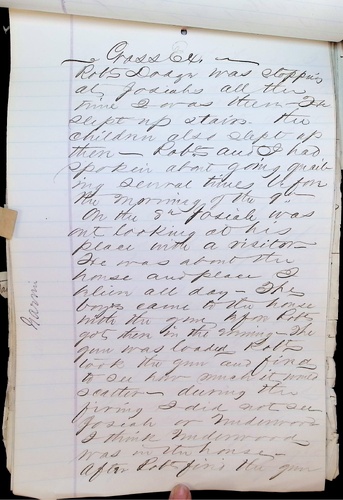 Cross Ex.
Robt Dodge was stopping
at Josiahs all the
time I was there - He
slept up stairs. the
children also slept up
there - Robt and I had
spoken about going quail-
ing several times before
the morning of the 9th.
On the 8th Josiah was
out looking at his
place with a visitor -
He was about the
house and place I
all day - The
boys came to the house
with the gun before Robt
got there in the evening - The
gun was loaded Robt
took the gun and fired
to see how much it would
scatter - during the
firing I did not see
Josiah or Underwood
I think Underwood
was in the house -
After Robt fired the gun